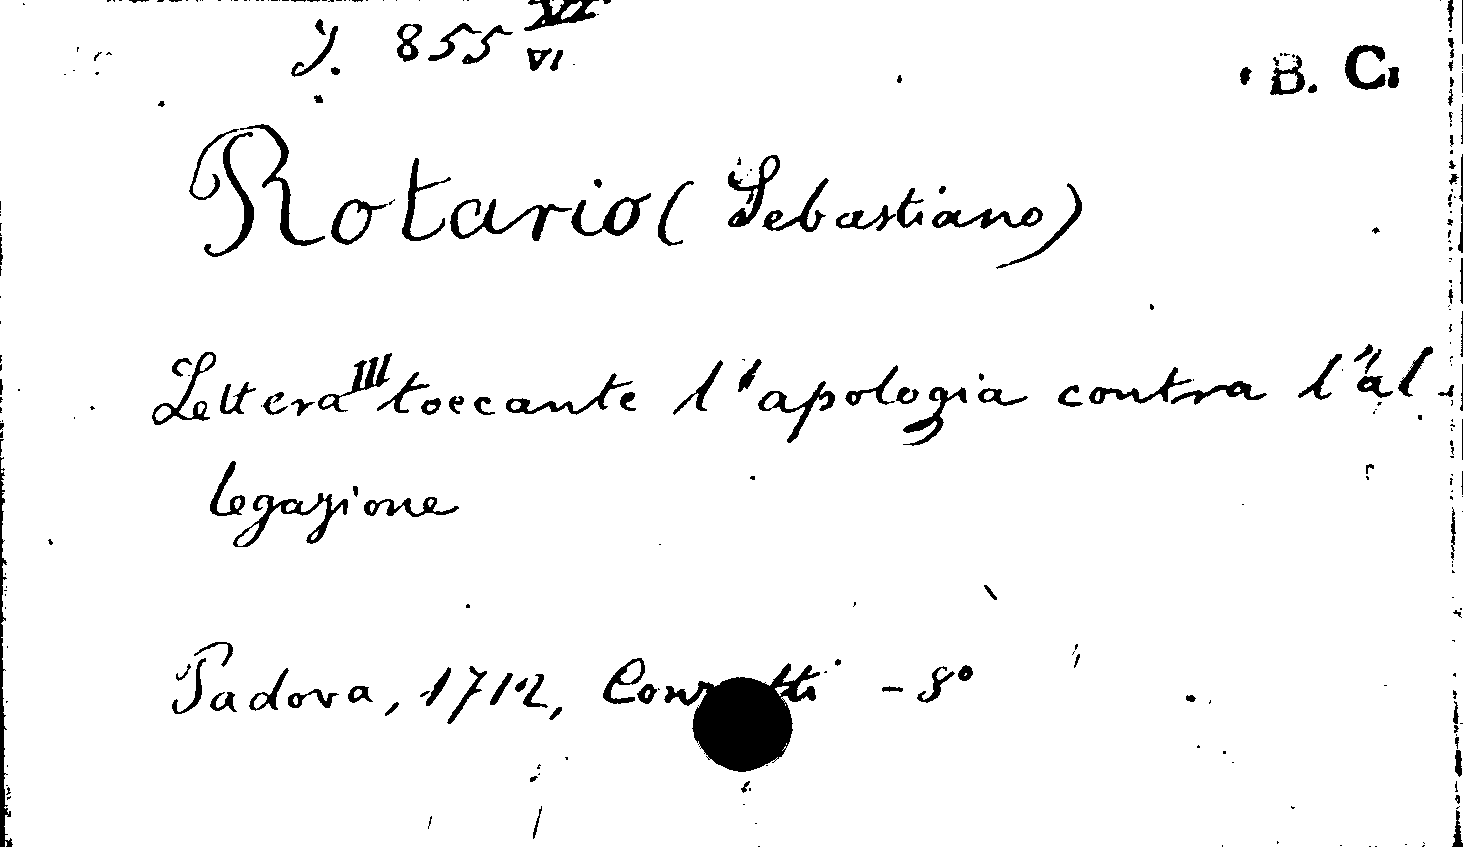 y. 855 VI
VI
B. C.
Rotario (Sebastiano)
Lettera III toccante l'apologia contra l'al-
legazione
Padova, 1712, - 8°